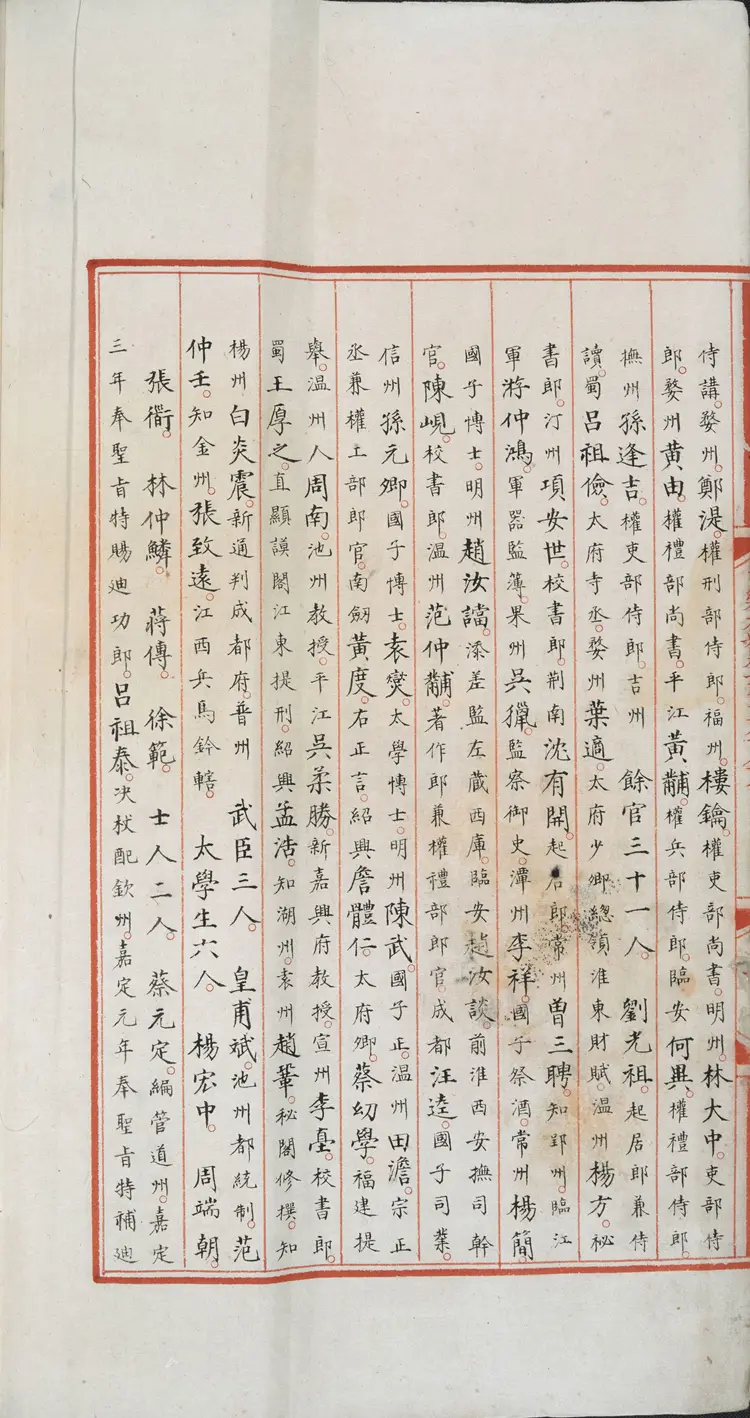 侍講。婺州。鄭湜。權刑部侍郎。福州。樓鑰。權吏部尚書。明州。林大中。吏部侍
郎。婺州黃由。權禮部尚書。平江黃黼。權兵部侍郎。臨安何異。權禮部侍郎。
撫州孫逢吉。權吏部侍郎。吉州　餘官三十一人。　劉光祖。起居郎兼侍
讀。蜀呂祖儉。太府寺丞。婺州葉適。太府少卿總領淮東財賦。温州楊方。秘
書郎。汀州項安世。校書郎。荆南沈有開。起居郎。常州曾三聘。知郢州。臨江
軍游仲鴻。軍器監簿。果州吳獵。監察御史。潭州李祥。國子祭酒。常州楊簡
國子博士。明州趙汝讜。添差監左藏西庫。臨安趙汝談。前淮西安撫司幹
官。陳峴。校書郎。温州范仲黼。著作郎兼權禮部郎官。成都汪逵。國子司業。
信州孫元卿。國子博士。袁爕。太學博士。明州陳武。國子正。温州田澹。宗正
丞兼權工部郎官。南劔黃度。右正言。紹興詹體仁。太府卿。蔡幼學。福建提
舉。温州人周南。池州教授。平江吳柔勝。新嘉興府教授。宣州李𡌴。校書郎。
蜀王厚之。直顯謨閣江東提刑。紹興孟浩。知湖州。袁州趙鞏。秘閣修撰。知
楊州白炎震。新通判成都府。普州　武臣三人。　皇甫斌。池州都統制。范
仲壬。知金州。張致遠。江西兵馬鈐轄。　太學生六人。　楊宏中。　周端朝。
張衜。　林仲麟。　蔣傳。　徐範。　士人二人。　蔡元定。編管道州。嘉定
三年奉聖旨特賜迪功郎。呂祖泰。决杖配欽州。嘉定元年奉聖旨特補迪